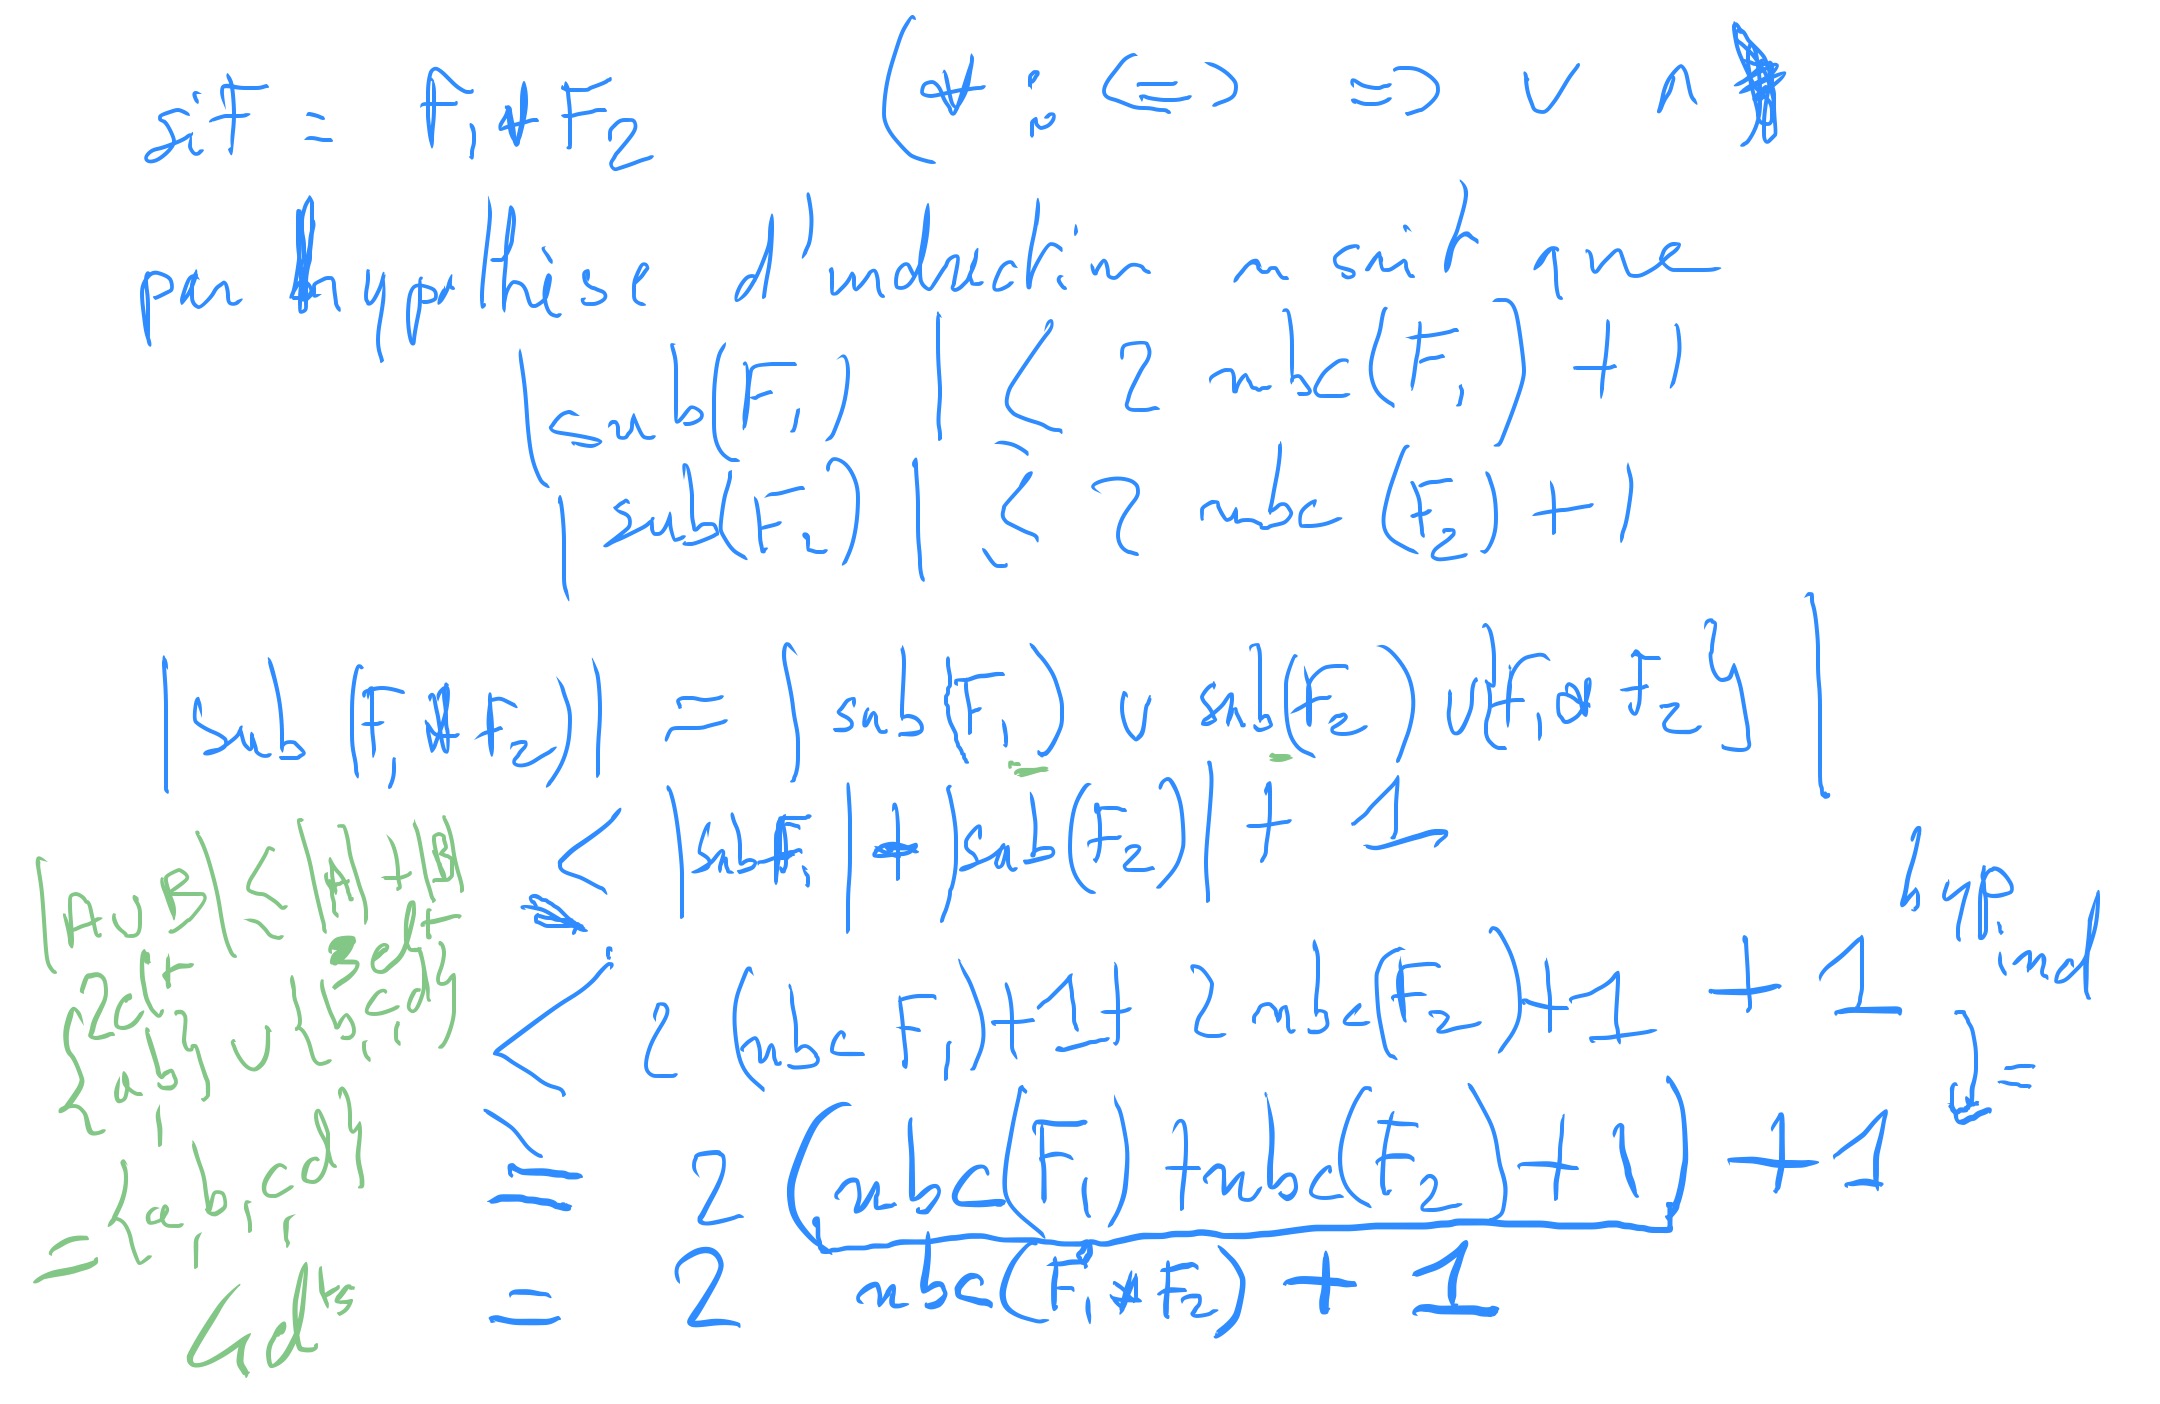 si F = F₁ * F₂ (* : <=> => ∨ ∧
par hypothèse d'induction on sait que
|sub(F₁)| ≤ 2 nbc(F₁) + 1
|sub(F₂)| ≤ 2 nbc(F₂) + 1
|sub(F₁ * F₂)| = |sub(F₁) ∪ sub(F₂) ∪ {F₁ * F₂}|
≤ |sub F₁| + |sub(F₂)| + 1
hyp ind
≤ 2 (nbc F₁) + 1 + 2 nbc(F₂) + 1 + 1
=
= 2 (nbc(F₁) + nbc(F₂) + 1) + 1
= 2 nbc(F₁ * F₂) + 1
|A ∪ B| ≤ |A| + |B|
2 elt 3 elt
{a, b} ∪ {b, c, d}
= {a, b, c, d}
4 elts